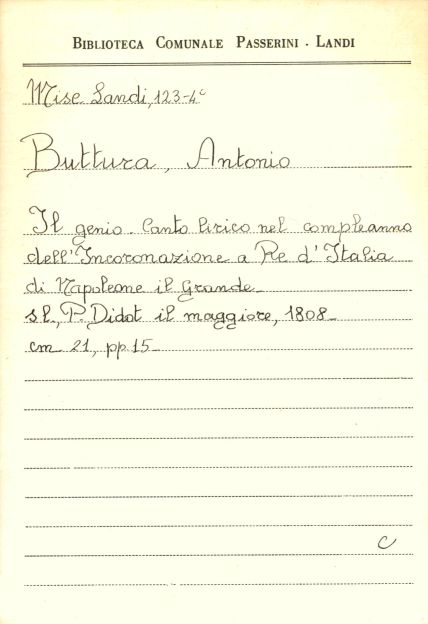 BIBLIOTECA COMUNALE PASSERINI - LANDI
Misc. Landi, 123-4°
Buttura, Antonio
Il genio. Canto lirico nel compleanno
dell'Incoronazione a Re d'Italia
di Napoleone il Grande_
sl, P. Didot il maggiore, 1808_
cm 21, pp 15_
C